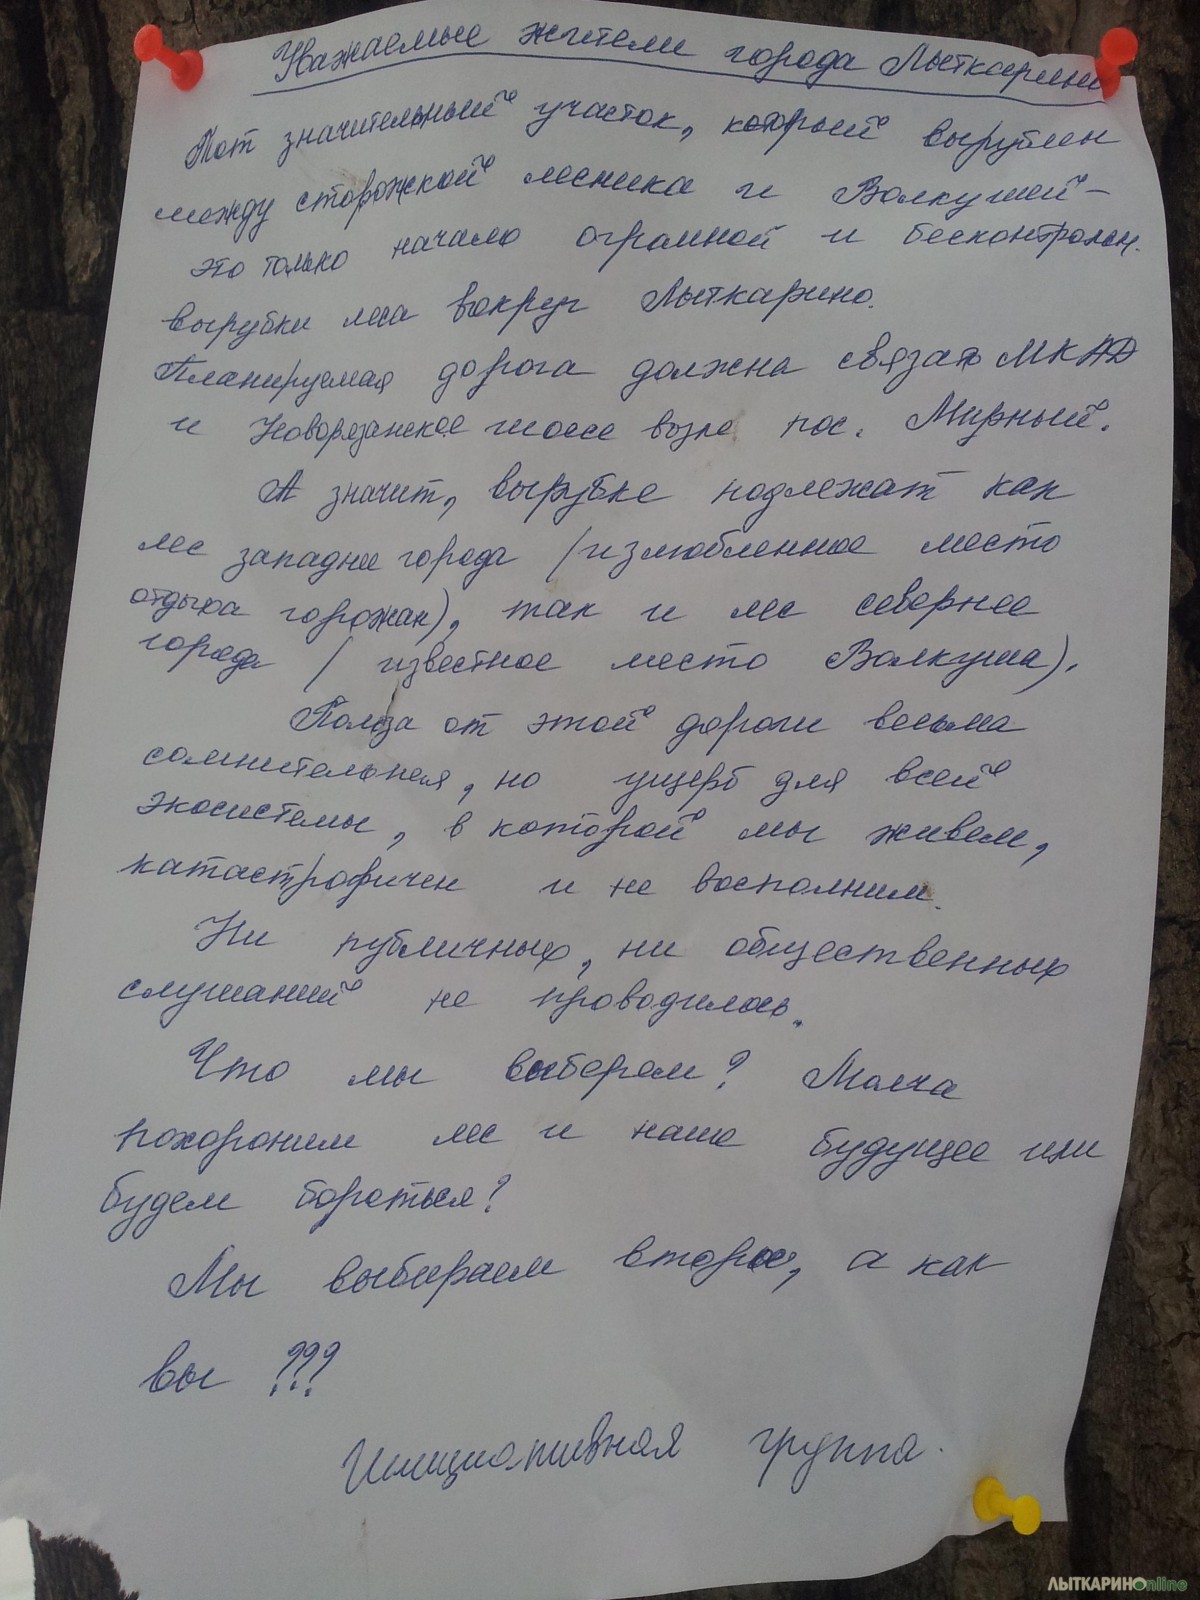 Уважаемые жители города Лыткарино
Тот значительный участок, который вырублен
между сторожкой лесника и Волкушей –
это только начало огромной и бесконтрольн.
вырубки леса вокруг Лыткарино.
Планируемая дорога должна связать МКАД
и Новорязанское шоссе возле пос. Мирный.
А значит, вырубке подлежат как
лес западнее города (излюбленное место
отдыха горожан), так и лес севернее
города (известное место Волкуша).
Польза от этой дороги весьма
сомнительная, но ущерб для всей
экосистемы, в которой мы живем,
катастрофичен и не восполним.
Ни публичных, ни общественных
слушаний не проводилось.
Что мы выберем? Молча
похороним лес и наше будущее или
будем бороться?
Мы выбираем второе, а как
вы ???
Инициативная группа.
ЛЫТКАРИНОonline